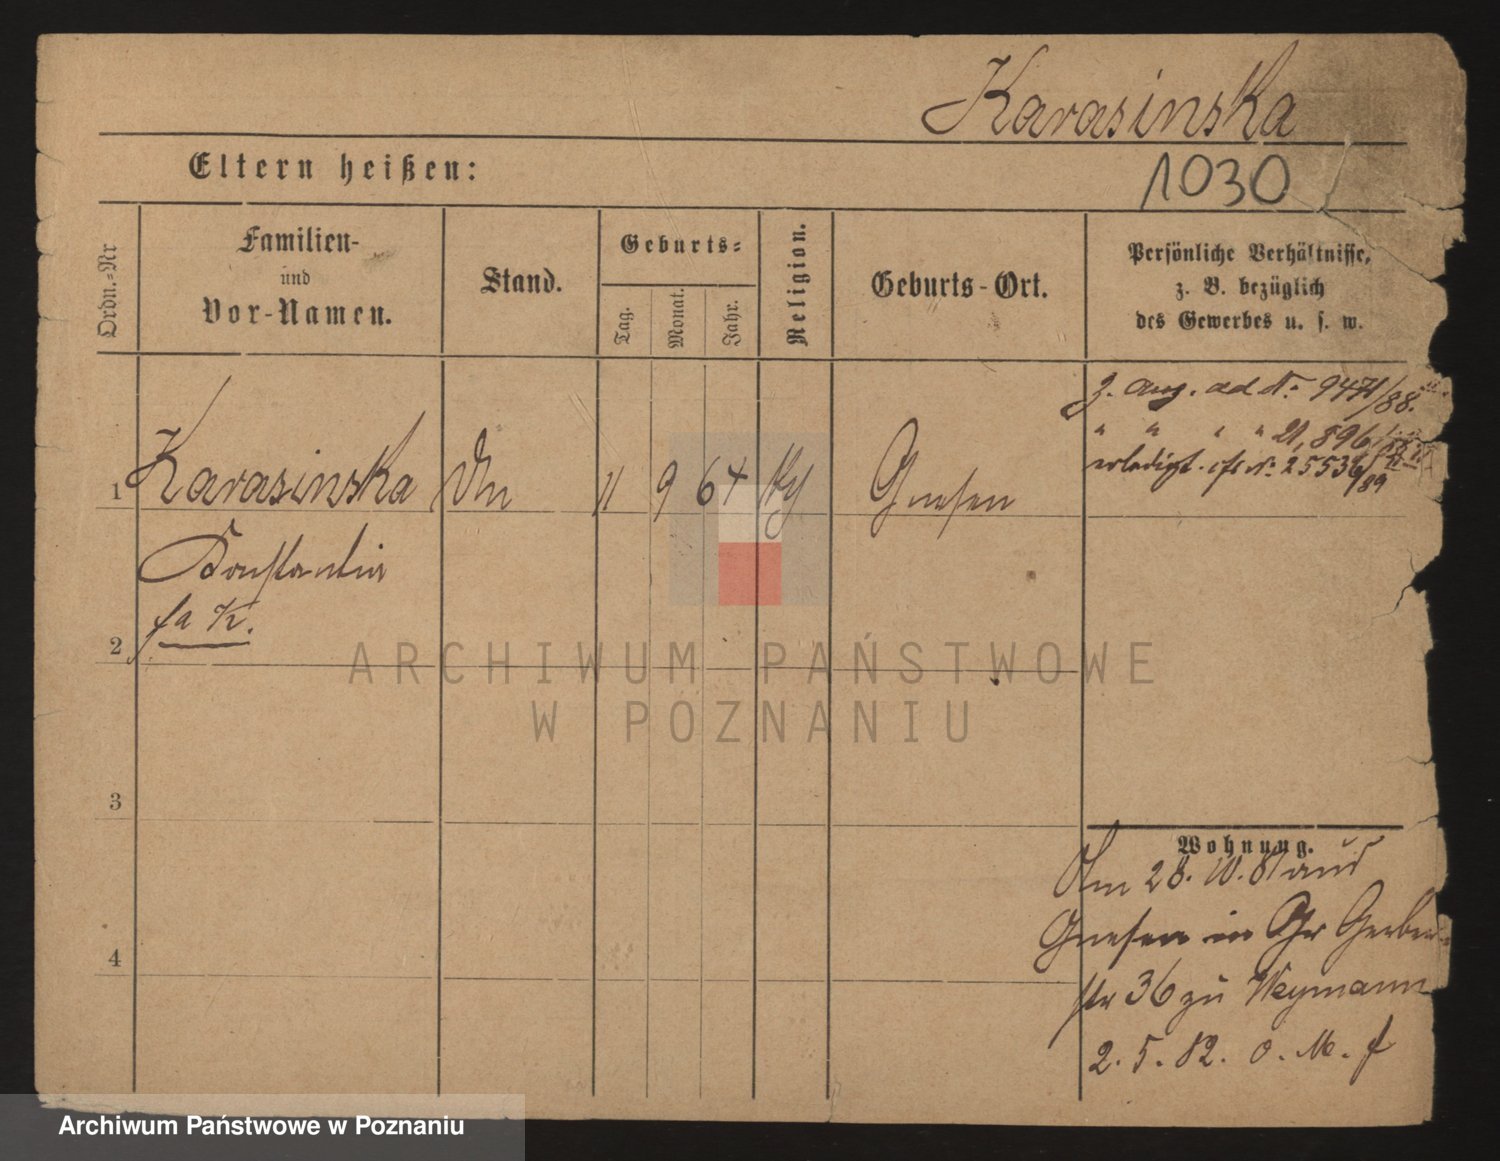 Karasinska
Eltern heißen:
1030
Ordn.-Nr
Familien-
und
Vor-Namen.
Stand.
Geburts-
Tag.
Monat.
Jahr.
Religion.
Geburts-Ort.
Persönliche Verhältnisse,
z. B. bezüglich
des Gewerbes u. s. w.
z. Aug. ad Nr. 9471/88.
" " " " 21,896
erledigt. cfr Nr. 25536/89
1 Karasinska 11 9 64 Gnesen
Konstantia
fa K.
2
3
4
Wohnung.
Am 28. 10. 81 aus
Gnesen in Gr Gerber
str 36 zu Weymann
2. 5. 82. o. M. f
ARCHIWUM PAŃSTWOWE
W POZNANIU
Archiwum Państwowe w Poznaniu